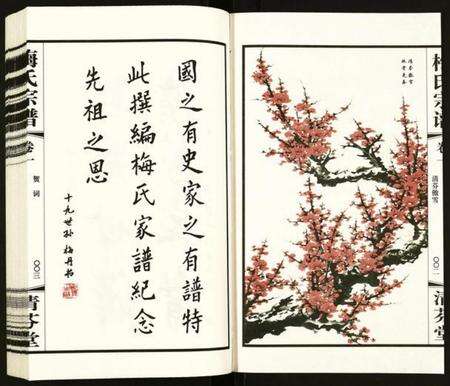 梅氏宗譜
卷一
清芬傲雪
〇〇二
清芬堂
國之有史家之有譜特
此撰編梅氏家譜紀念
先祖之恩
十九世孫梅丹拓
梅氏宗譜
卷一
賀詞
〇〇三
清芬堂